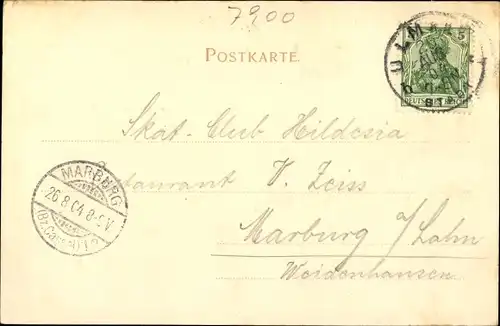 7900
POSTKARTE.
ULM
DEUTSCHES REICH
Skat-Club Hildesia
Restaurant V. Zeiss
MARBURG
26.8.04.8-9V
(Bz. Cassel) 1
Marburg a/Lahn
Weidenhausen